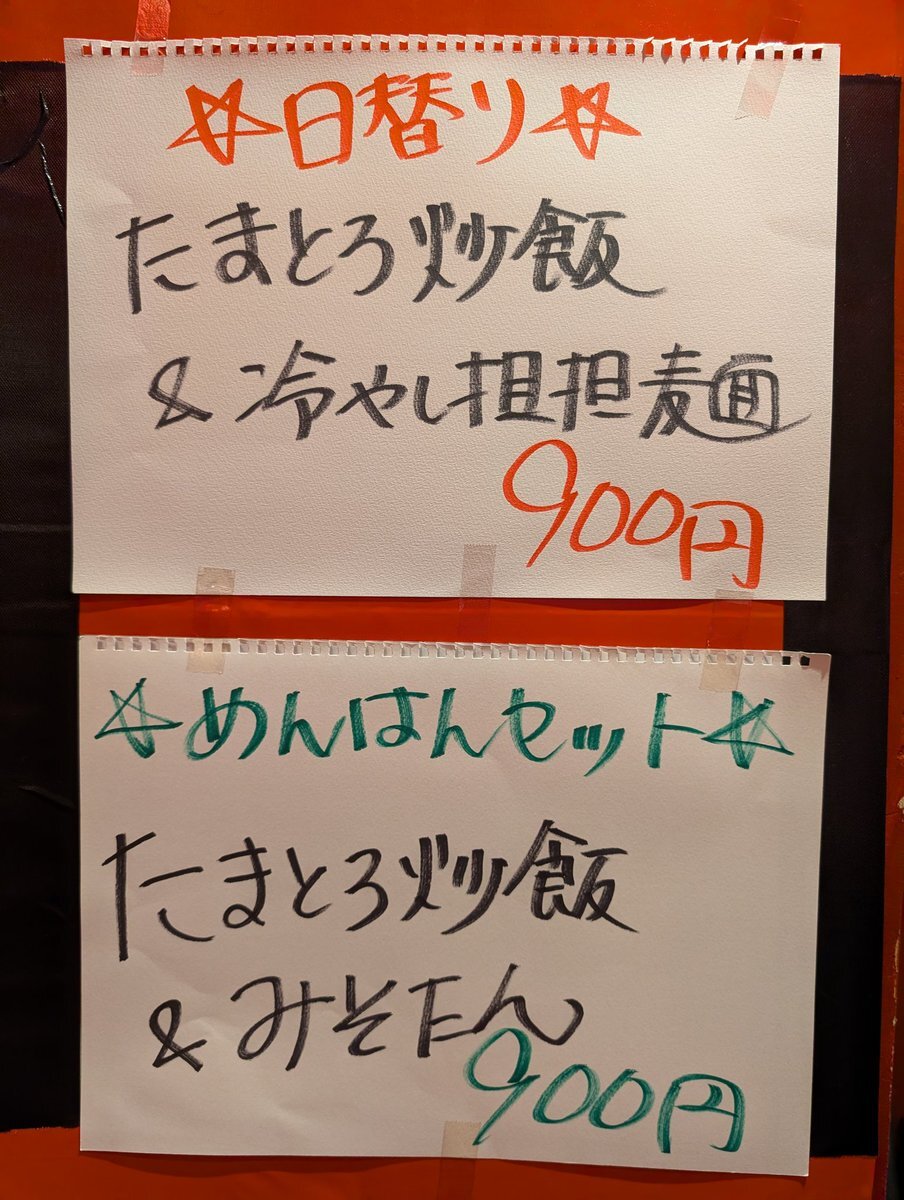 ☆日替り☆
たまとろ炒飯
&冷やし担担麺
900円
☆めんはんセット☆
たまとろ炒飯
&みそたん
900円